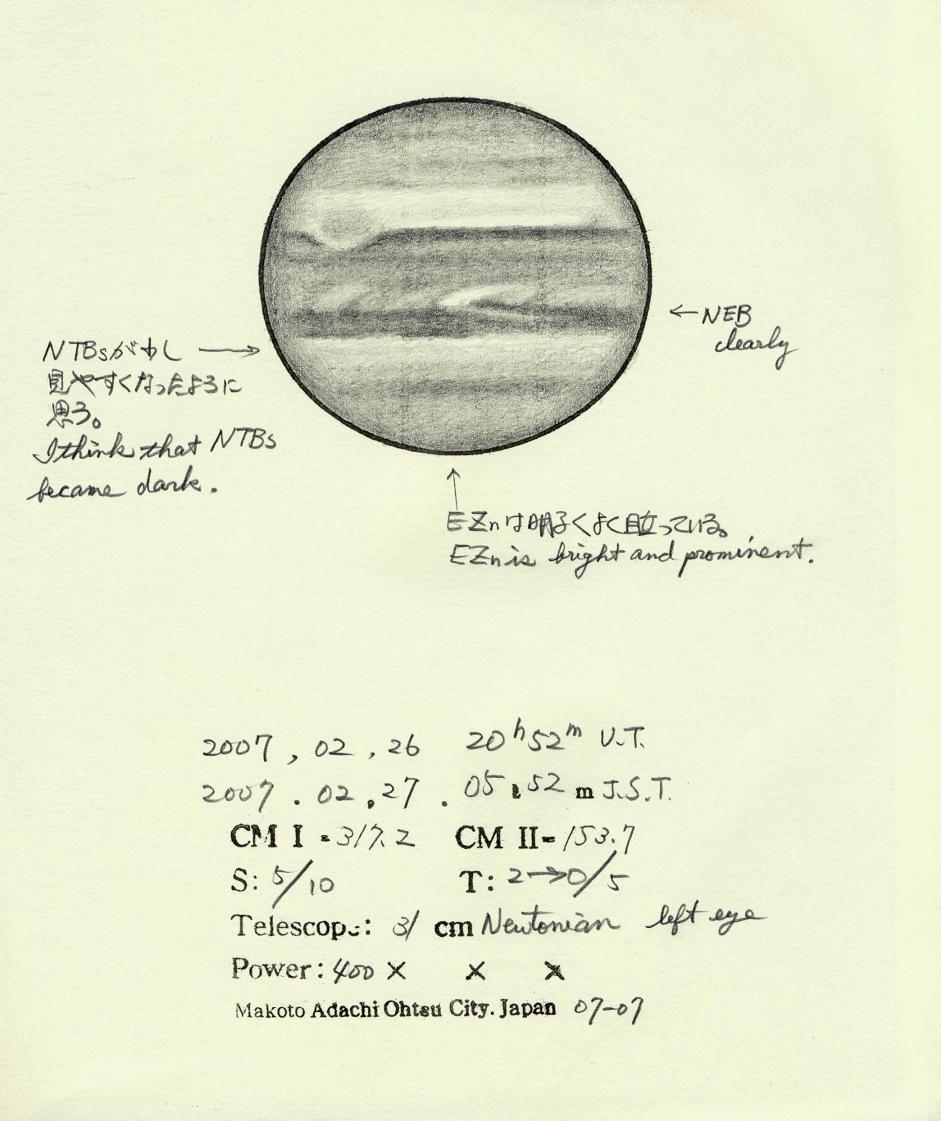 ← NEB
clearly
NTBsが少し →
見やすくなったように
思う。
I think that NTBs
became dark.
↑
EZnは明るくよく目立っている。
EZn is bright and prominent.
2007, 02, 26 20h52m U.T.
2007. 02, 27. 05 52 m J.S.T.
CM I = 317.2 CM II= 153.7
S: 5/10 T: 2→0/5
Telescope: 31 cm Newtonian left eye
Power: 400 × × ×
Makoto Adachi Ohtsu City. Japan 07-07